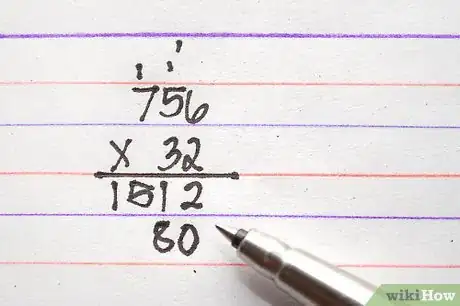 1
1 1
756
X 32
1512
80
wikiHow